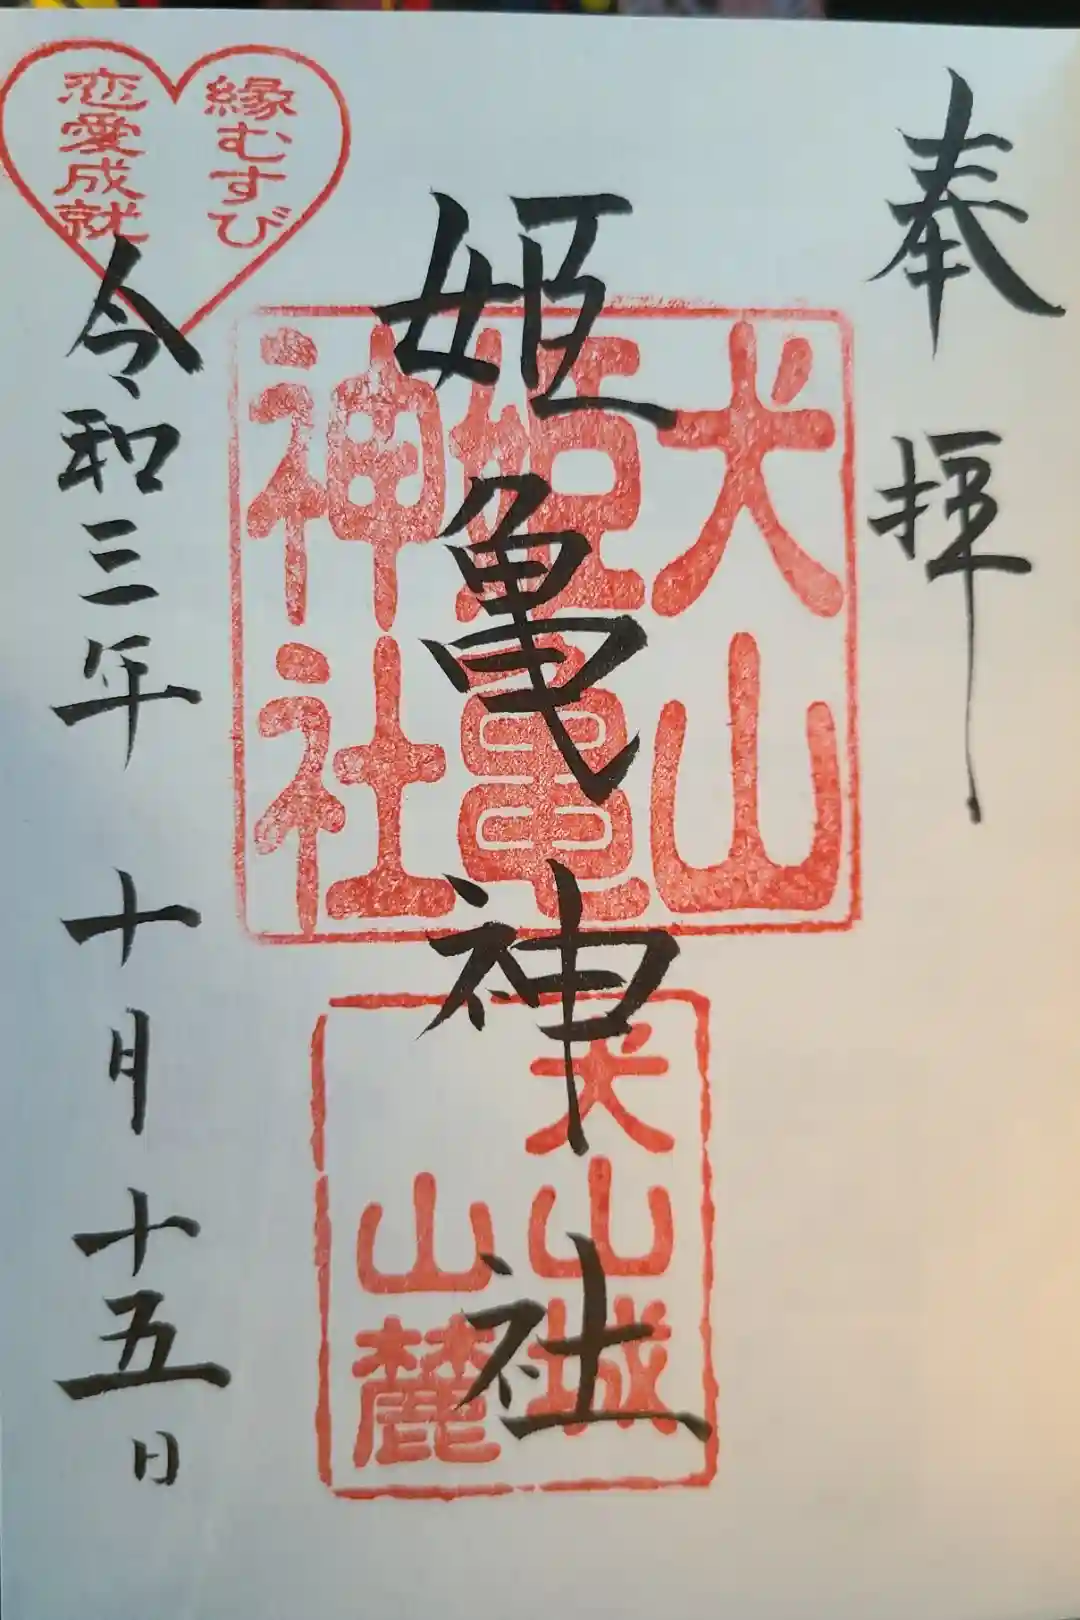 奉拝
犬山
姫亀
神社
姫亀神社
犬山城
山麓
縁むすび
恋愛成就
令和三年十月十五日